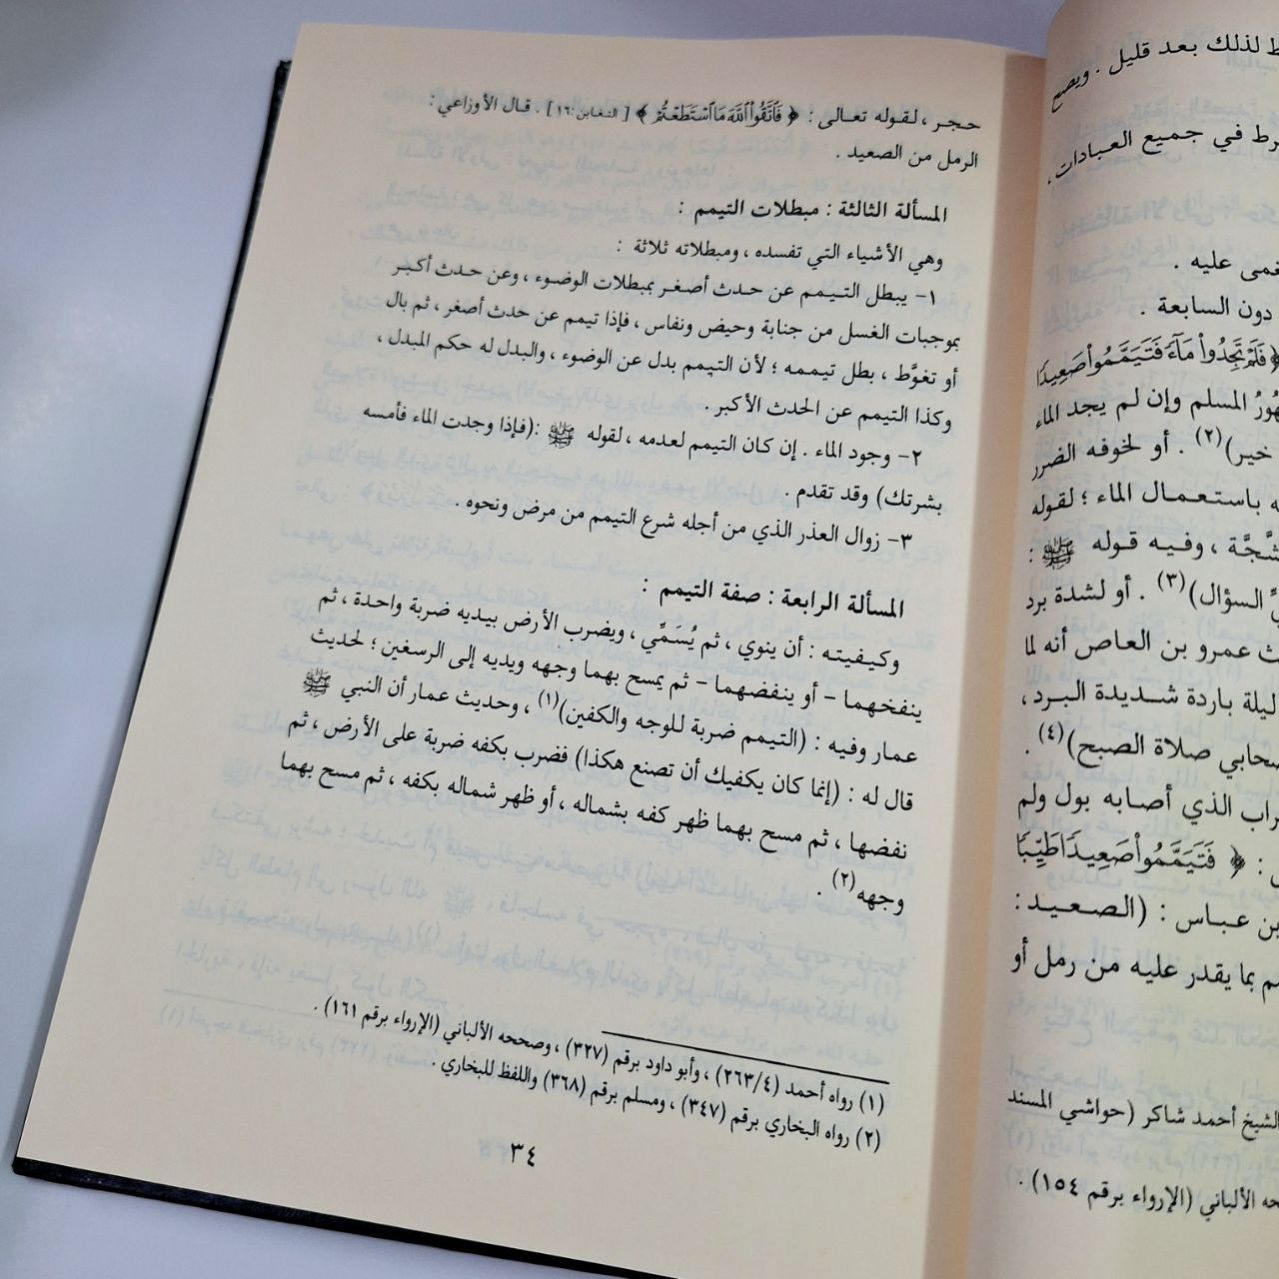 ط لذلك بعد قليل . ويصح
رط في جميع العبادات ،
غمى عليه .
دون السابعة .
﴿ فَلَمْ تَجِدُواْ مَآءً فَتَيَمَّمُواْ صَعِيدًا
هُورُ المسلم وإن لم يجد الماء
خير)(٢) . أو لخوفه الضرر
ه باستعمال الماء ؛ لقوله
شَّجَّة ، وفيه قوله ﷺ :
يِّ السؤال)(٣) . أو لشدة برد
ث عمرو بن العاص أنه لما
ليلة باردة شديدة البرد ،
صحابي صلاة الصبح)(٤) .
راب الذي أصابه بول ولم
: ﴿ فَتَيَمَّمُواْ صَعِيدًا طَيِّبًا
بن عباس : (الصعيد :
م بما يقدر عليه من رمل أو
الشيخ أحمد شاكر (حواشي المسند
حه الألباني (الإرواء برقم ١٥٤) .
حجر ، لقوله تعالى : ﴿ فَٱتَّقُواْ ٱللَّهَ مَا ٱسْتَطَعْتُمْ ﴾ [التغابن: ١٦] . قال الأوزاعي :
الرمل من الصعيد .
المسألة الثالثة : مبطلات التيمم :
وهي الأشياء التي تفسده ، ومبطلاته ثلاثة :
١- يبطل التيمم عن حدث أصغر بمبطلات الوضوء ، وعن حدث أكبر
بموجبات الغسل من جنابة وحيض ونفاس ، فإذا تيمم عن حدث أصغر ، ثم بال
أو تغوَّط ، بطل تيممه ؛ لأن التيمم بدل عن الوضوء ، والبدل له حكم المبدل ،
وكذا التيمم عن الحدث الأكبر .
٢- وجود الماء . إن كان التيمم لعدمه ، لقوله ﷺ :(فإذا وجدت الماء فأمسه
بشرتك) وقد تقدم .
٣- زوال العذر الذي من أجله شرع التيمم من مرض ونحوه .
المسألة الرابعة : صفة التيمم :
وكيفيته : أن ينوي ، ثم يُسَمِّي ، ويضرب الأرض بيديه ضربة واحدة ، ثم
ينفخهما – أو ينفضهما – ثم يمسح بهما وجهه ويديه إلى الرسغين ؛ لحديث
عمار وفيه : (التيمم ضربة للوجه والكفين)(١) ، وحديث عمار أن النبي ﷺ
قال له : (إنما كان يكفيك أن تصنع هكذا) فضرب بكفه ضربة على الأرض ، ثم
نفضها ، ثم مسح بهما ظهر كفه بشماله ، أو ظهر شماله بكفه ، ثم مسح بهما
وجهه(٢) .
(١) رواه أحمد (٢٦٣/٤) ، وأبو داود برقم (٣٢٧) ، وصححه الألباني (الإرواء برقم ١٦١) .
(٢) رواه البخاري برقم (٣٤٧) ، ومسلم برقم (٣٦٨) واللفظ للبخاري .
٣٤